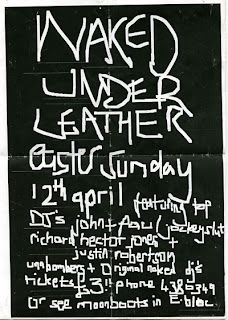 NAKED
UNDER
LEATHER
easter Sunday
12th april
featuring top
DJ's john + Paul
richard hector jones +
justin robertson
unabombers + Original naked dj's
tickets £3!! phone
or see moonboots in E bloc.